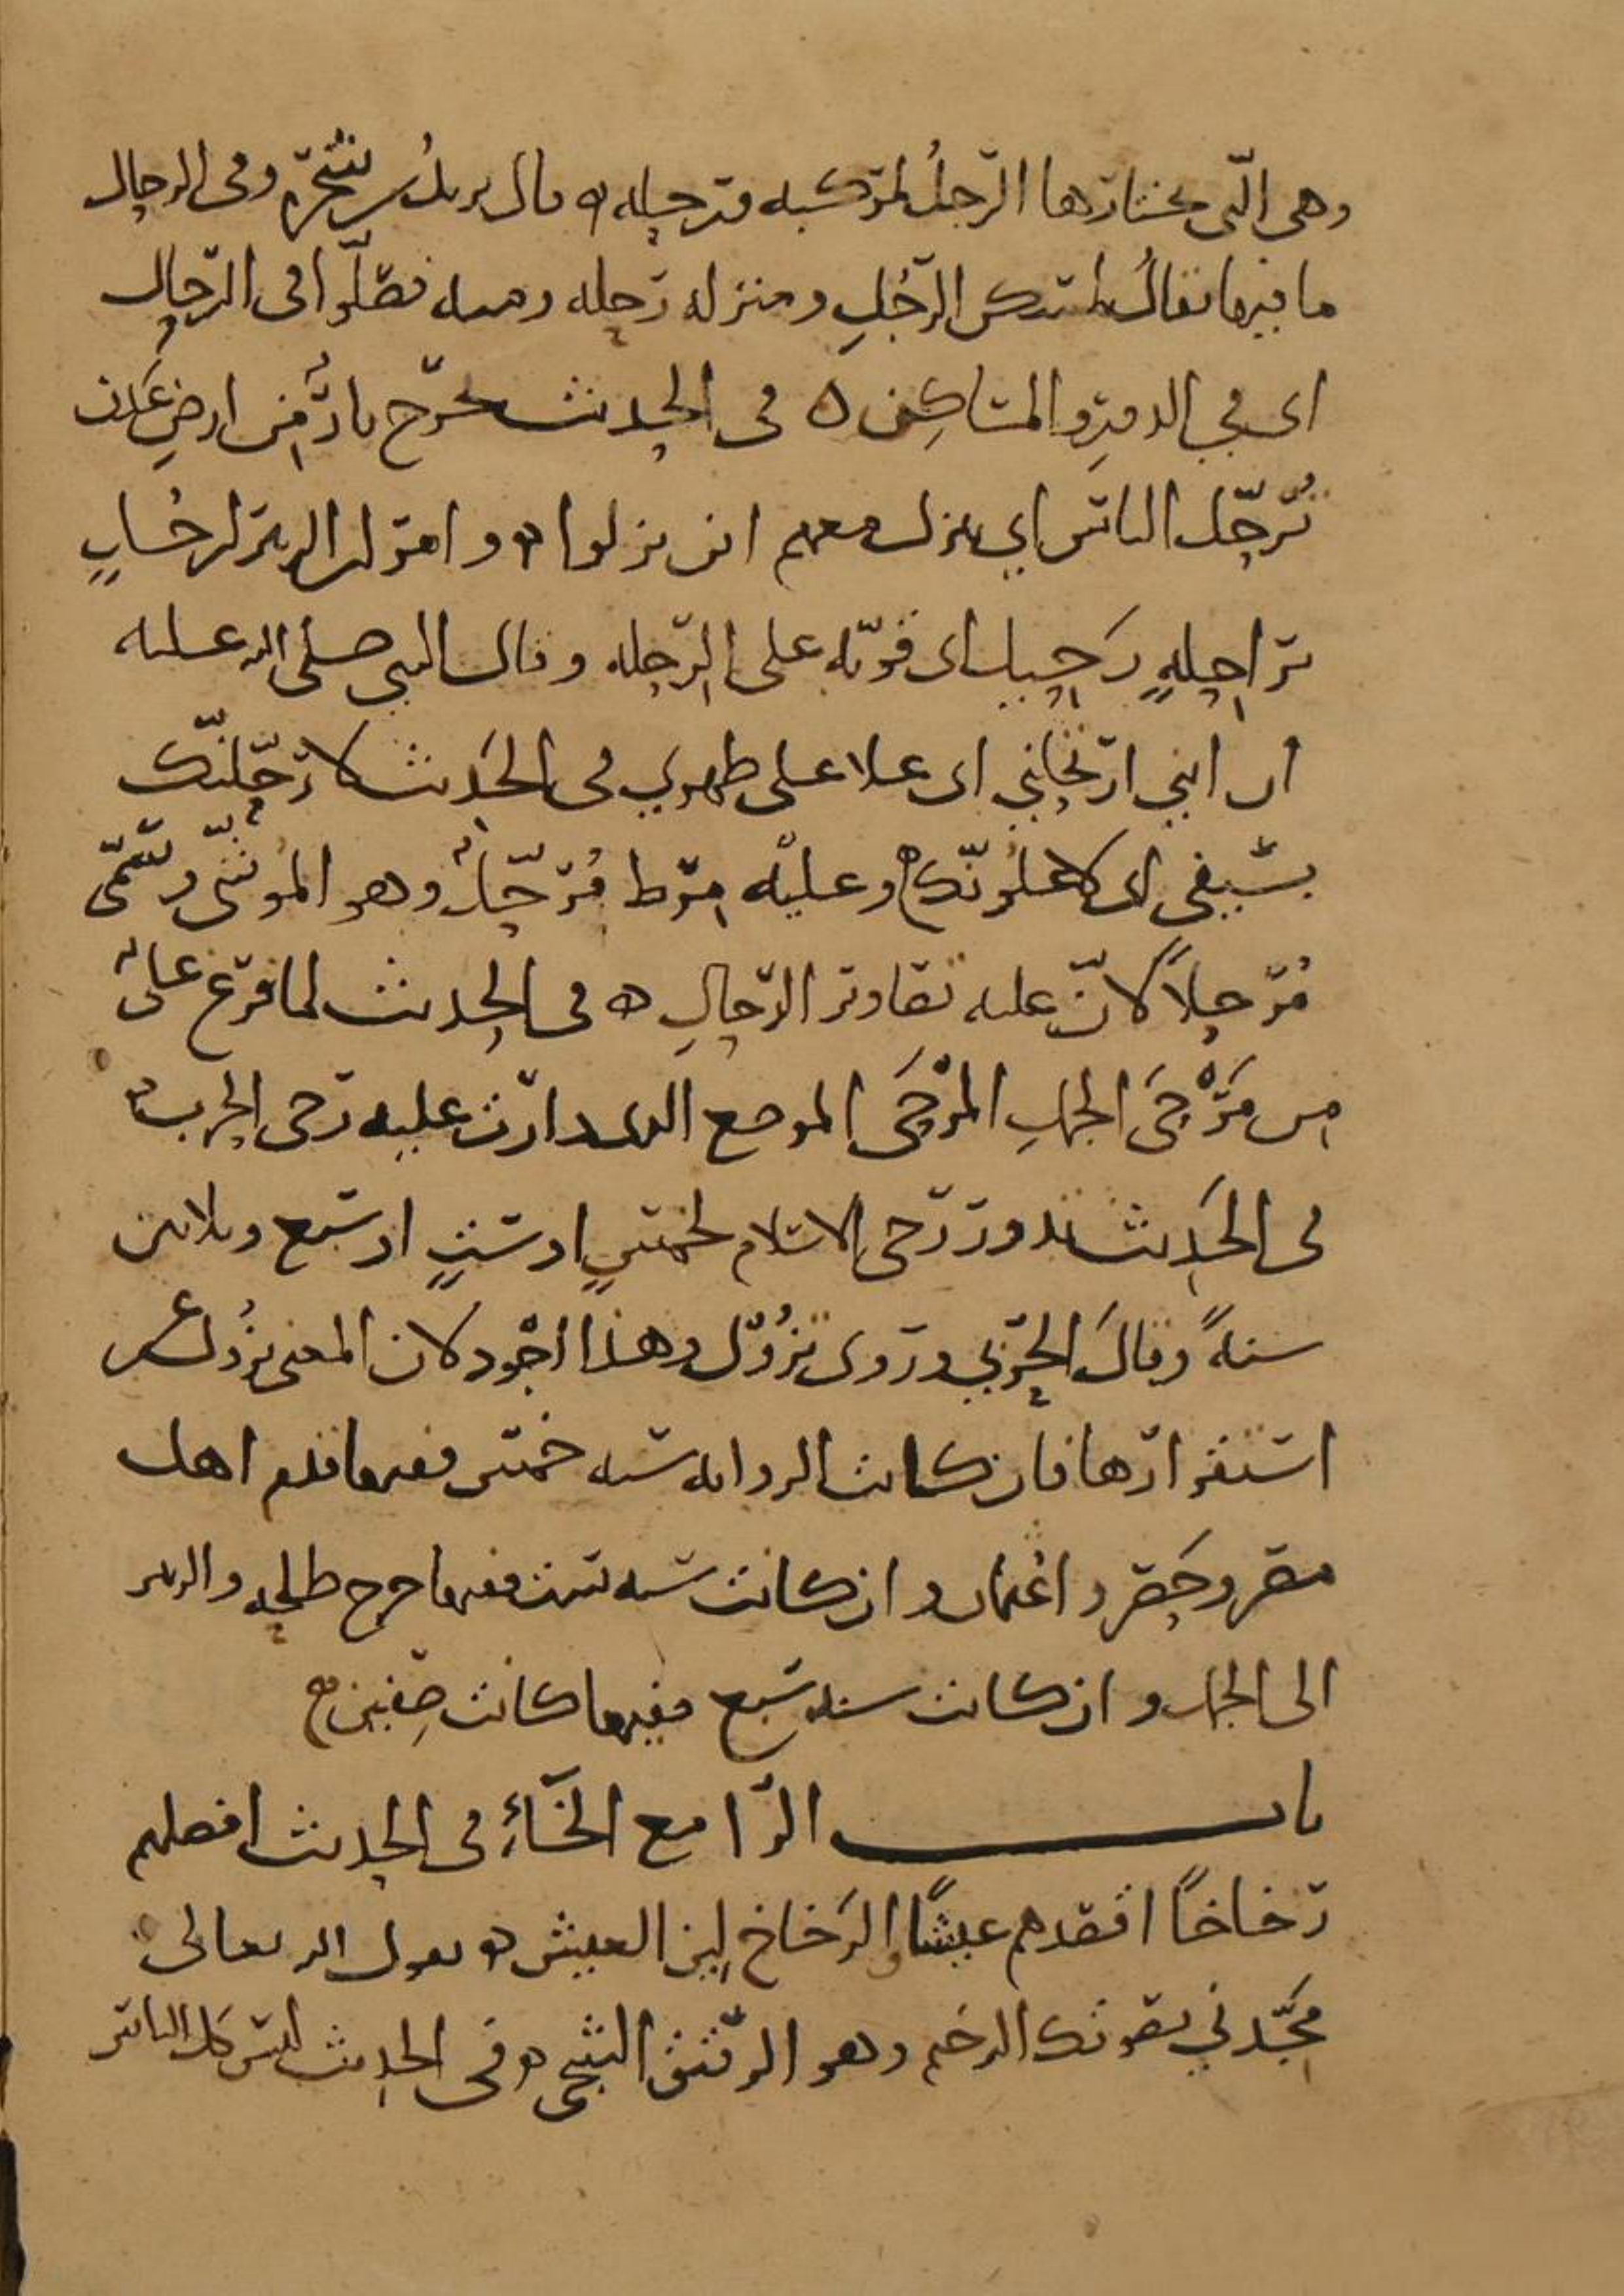 وهي التي يختارها الرجلُ لمركبه ورحله ه قال يزيد بن شجرة وفي الرحال
ما فيها يقالُ لمسكن الرجُلِ ومنزله رحله ومنه فصلّوا في الرّحال
اي في الدور والمساكِن ه في الحديث تخرج نارٌ من ارضِ عَدَن
تُرحّل الناس اي ينزل معهم اذا نزلوا ه و
راحِلةٍ رَحِيل اي قويّة على الرّحله وقال النبي صلى الله عليه
ان ابني ارتحلني اي علا على ظهري في الحَدِيث لارحّلنّك
بسَيفي اي لاعلُونّك ه وعليه مِرط مُرحّلٌ وهو الموشّى ويسمّى
مُرحلاً لانّ عليه تصاوير الرّحالِ ه في الحِديث لما فرغ علىٌّ
مِن مَرْحَى الجملِ المرْحَى الموضع الذي دارت عليه رحى الحرب ه
في الحَدِيث تدور رَحى الاسلام لخمسٍ او ستٍ او سبع وثلاثين
سنةً وقالَ الحَربي ورَوى تزُوْل وهذا اجْود لان المعنى تزُول عن
استقرارها فان كانت الروايه سنه خمس ففيها قدم اهل
مصر وحصروا عُثمان وان كانت سنه ست ففيها خرج طلحه والزبير
الى الجمل وان كانت سنه سبع ففيها كانت صِفين ه
باب الرّا مع الخَاءِ في الحديث افضلهم
رَخاخًا اقصدهم عيشًا والرَخاخ لِين العيش ه يقول الله تعالى
مَجِّدني بصوتك الرخيم وهو الرقيق الشجي ه وفي الحديث ليس كل الناس